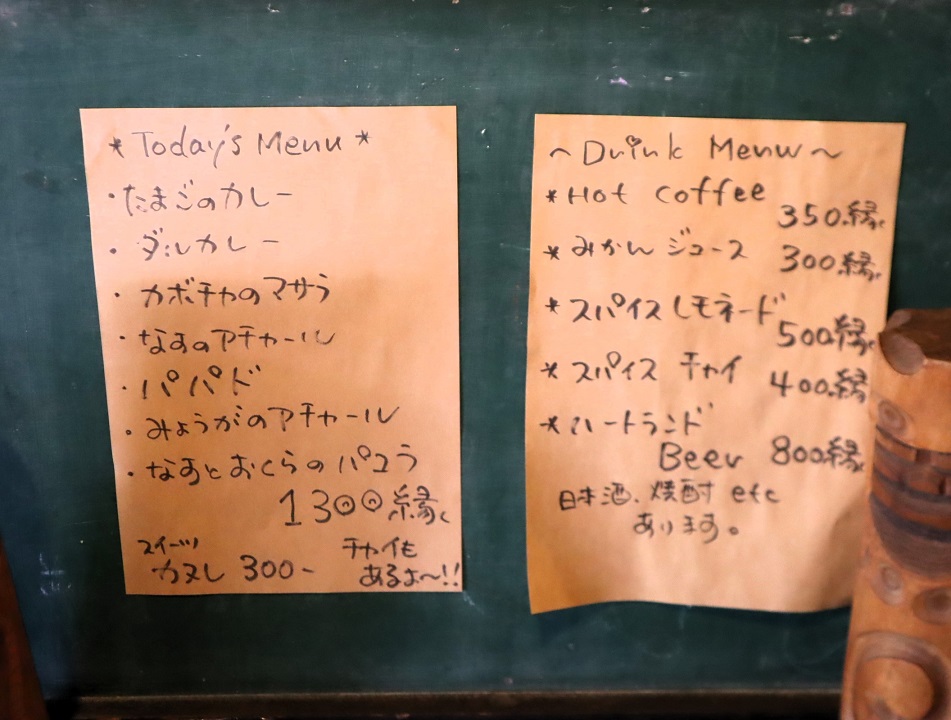 * Today's Menu *
・たまごのカレー
・ダルカレー
・カボチャのマサラ
・なすのアチャール
・パパド
・みょうがのアチャール
・なすとおくらのパコラ
1300縁
スイーツ
カヌレ 300-
チャイも
あるよ〜!!
〜Drink Menu〜
* Hot coffee
350縁
* みかんジュース 300縁
* スパイスレモネード
500縁
* スパイス チャイ 400縁
* ハートランド
Beer 800縁
日本酒、焼酎 etc
あります。